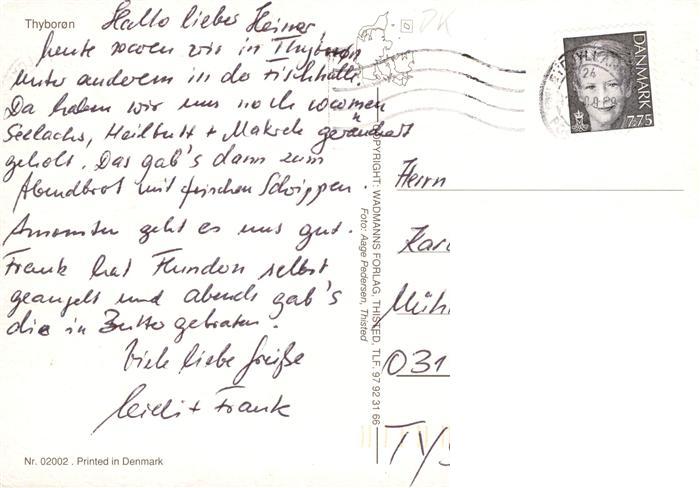 Thyborøn
Hallo lieber Heiner
heute waren wir in Thyborøn
unter anderem in der Fischhalle.
Da haben wir uns noch warmen
Seelachs, Heilbutt + Makrele geräuchert
geholt. Das gab's dann zum
Abendbrot mit frischen Schrippen.
Ansonsten geht es uns gut.
Frank hat Flundern selbst
geangelt und abends gab's
die in Butter gebraten.
Viele liebe Grüße
Heidi + Frank
Nr. 02002 . Printed in Denmark
COPYRIGHT: WADMANNS FORLAG, THISTED, TLF. 97 92 31 66
Foto: Aage Pedersen, Thisted
DK
DANMARK
7.75
Herrn
Karl
Mühl
031
TYS